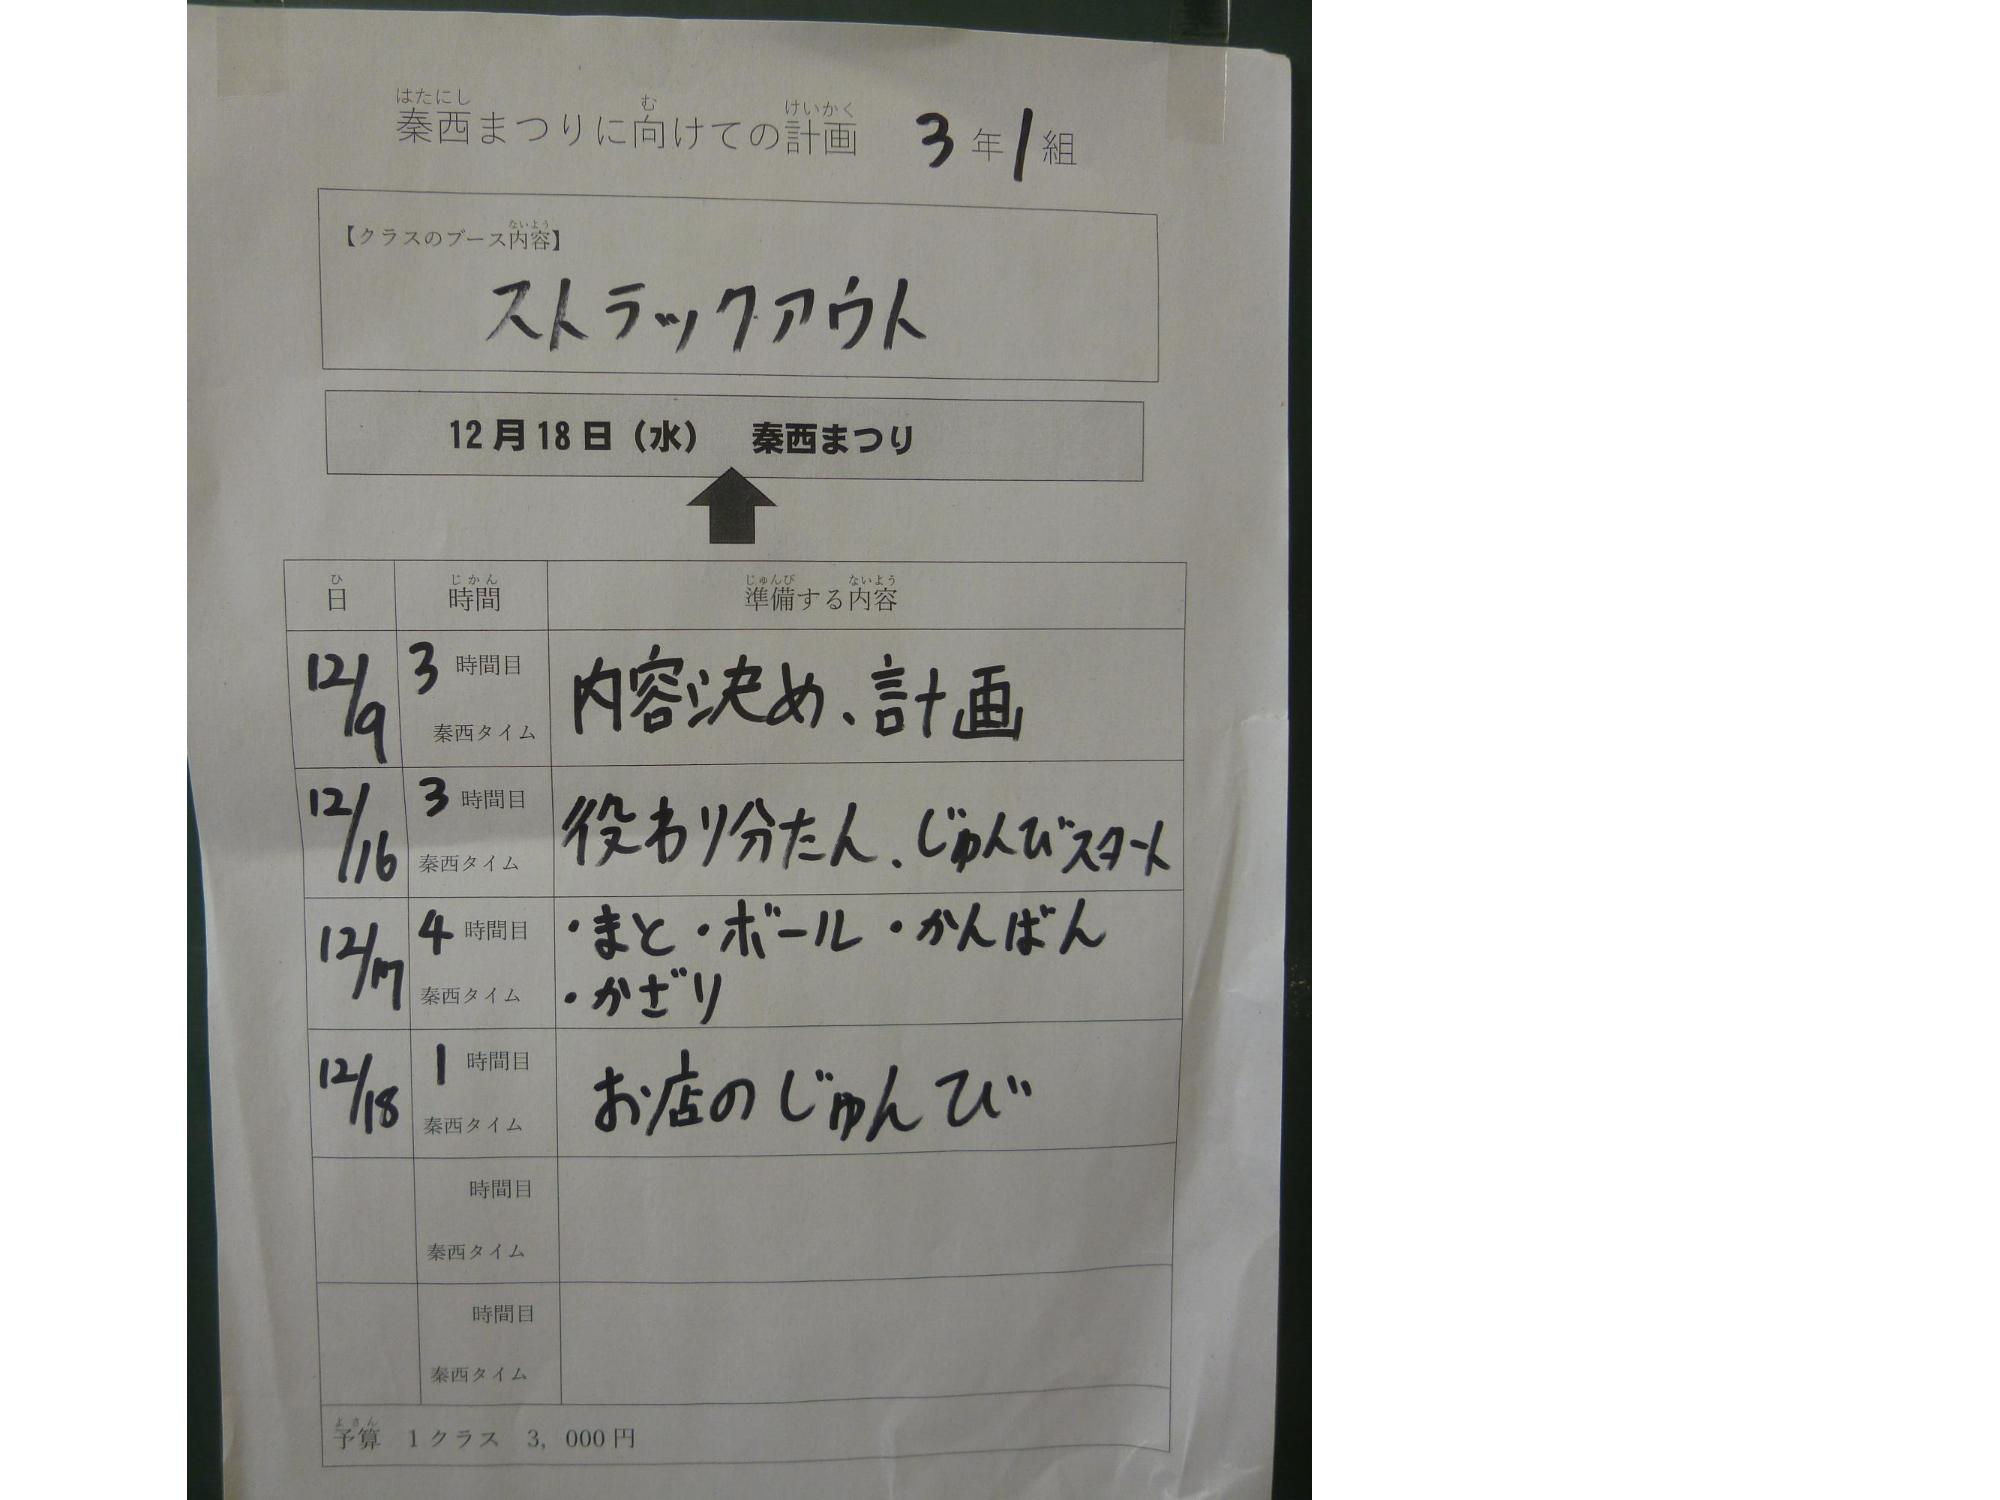 はたにし む けいかく
秦西まつりに向けての計画 3年1組
ないよう
【クラスのブース内容】
ストラックアウト
12月18日（水） 秦西まつり
ひ じかん じゅんび ないよう
日 時間 準備する内容
12/9 3 時間目 内容決め、計画
秦西タイム
12/16 3 時間目 役わり分たん、じゅんびスタート
秦西タイム
12/17 4 時間目 ・まと ・ボール ・かんばん
秦西タイム ・かざり
12/18 1 時間目 お店のじゅんび
秦西タイム
時間目
秦西タイム
時間目
秦西タイム
よさん
予算 1クラス 3，000円